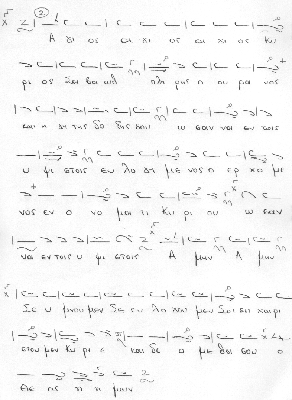 Α γι ος α γι ος α γι ος Κυ
ρι ος Σαβαωθ πλη ρης ο ου ρα νος
και η γη της δο ξης σου ω σαν να εν τοις
υ ψι στοις ευ λο γη με νος ο ερ χο με
νος εν ο νο μα τι Κυ ρι ου ω σαν
να εν τοις υ ψι στοις Α μην Α μην
Σε υ μνου μεν σε ευ λο γου μεν σοι ευ χα ρι
στου μεν Κυ ρι ε και δε ο με θα σου ο
Θε ος η μων